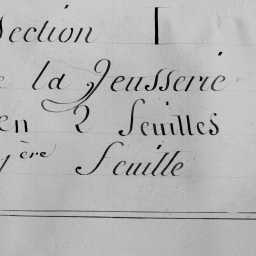 Section I
la Jeusserie
en 2 Feuilles
1ère Feuille